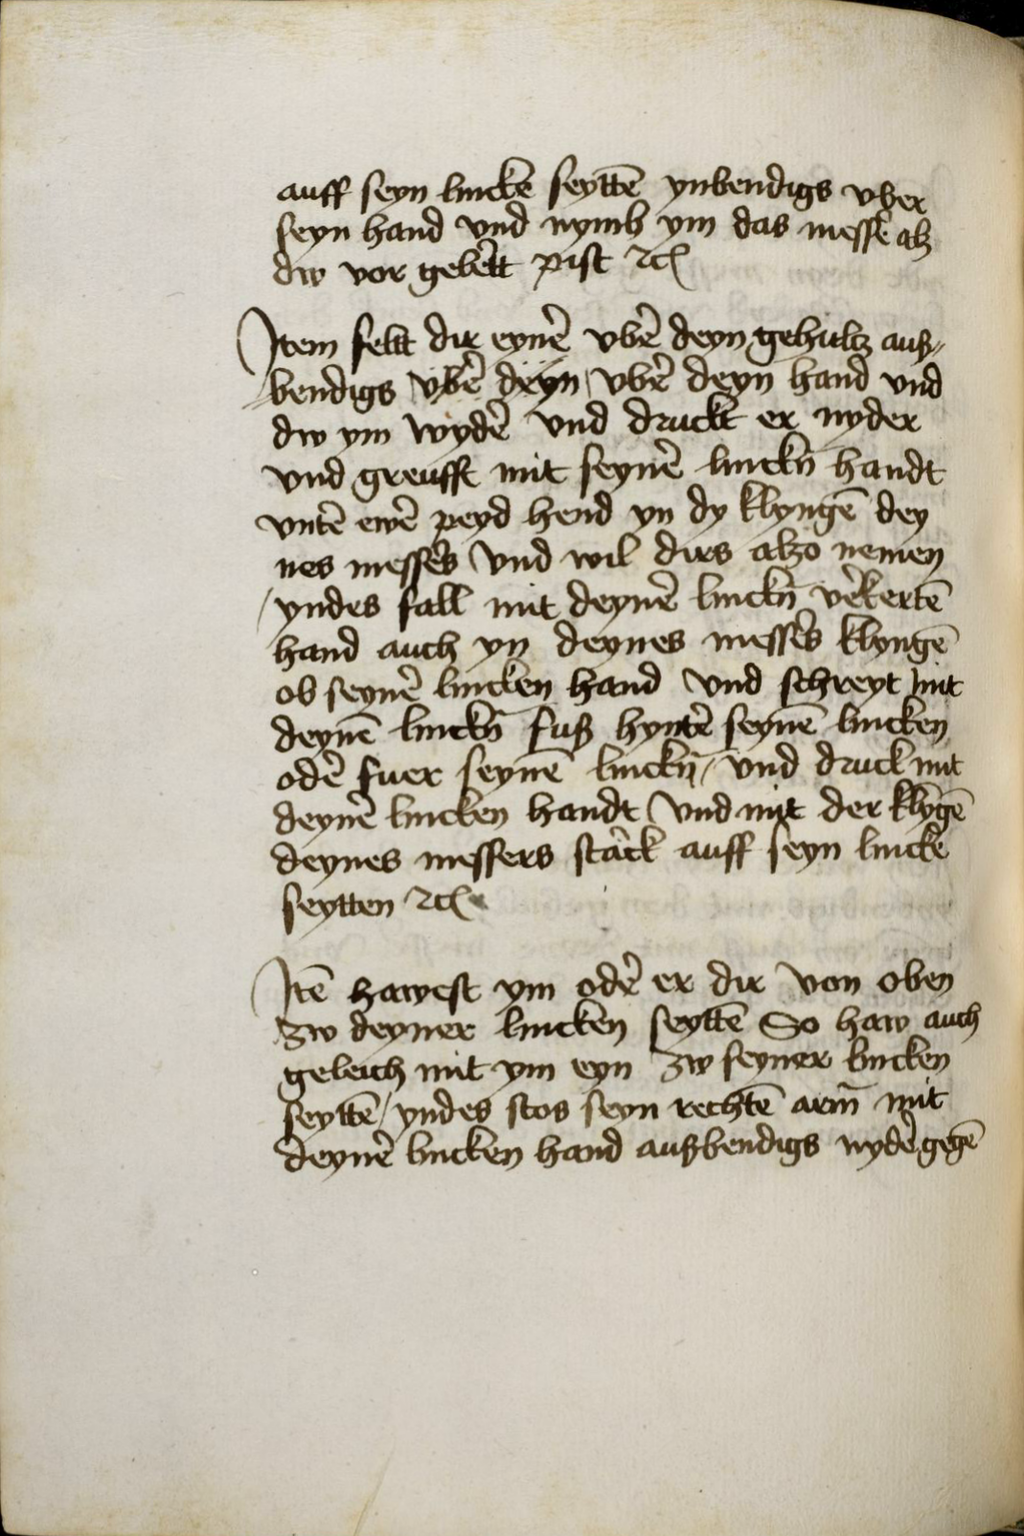 auff seyn lincke seyttē ynbendigs vber
seyn hand vnd nymb ym das messer alz
dw vor gelert pist ꝛcꝭ
Item felt dir eynē vbē deyn gehultz aus„
bendigs vbē deyn vbē deyn hand vnd
dw ym wydē vnd druckt er nyder
vnd greufft mit seynē linckñ handt
vntē ewē peyd hend yn dy klyngē dey
nes messers vnd wil dirs alzo nemen
/ yndes fall mit deynē linckñ vˀkertē
hand auch yn deynes messers klyngē
ob seynē lincken hand vnd schreyt mit
deynē linckñ fuß hyntē seynē lincken
odē fuer seynē linckñ / vnd druck mit
deynē lincken handt vnd mit der klȳgē
deynes messers starck auff seyn lincke
seytten ꝛcꝭ
Itē hawest ym odē er dir von oben
zw deyner lincken seyttē So haw auch
geleich mit ym eyn zw seyner lincken
seyttē / yndes stos seyn rechtē arm̄ mit
deynē lincken hand außbendigs nydē gegē